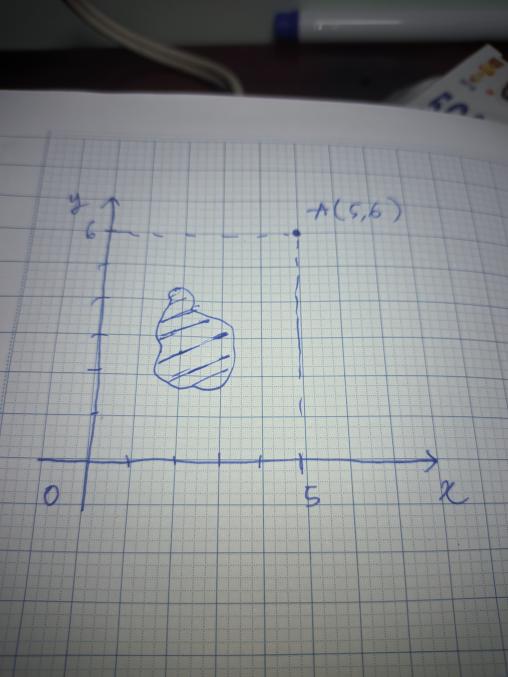 y
6
A(5,6)
0
5
x